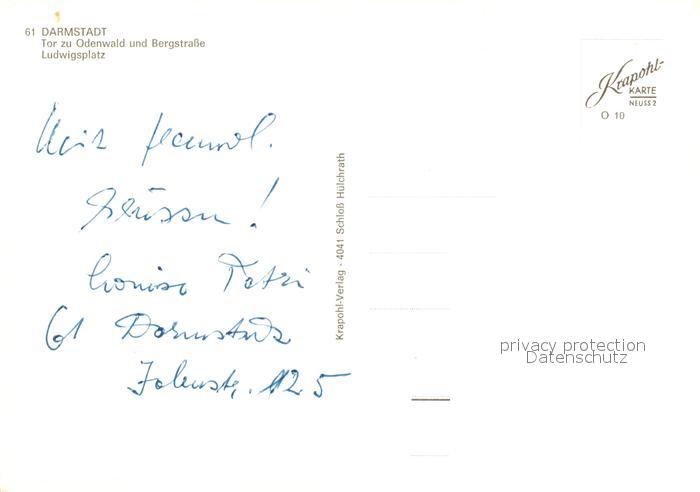 61 DARMSTADT
Tor zu Odenwald und Bergstraße
Ludwigsplatz
Krapohl-
KARTE
NEUSS 2
O 10
Mit freundl.
Grüssen!
61 Darmstadt
125
Krapohl-Verlag · 4041 Schloß Hülchrath
privacy protection
Datenschutz